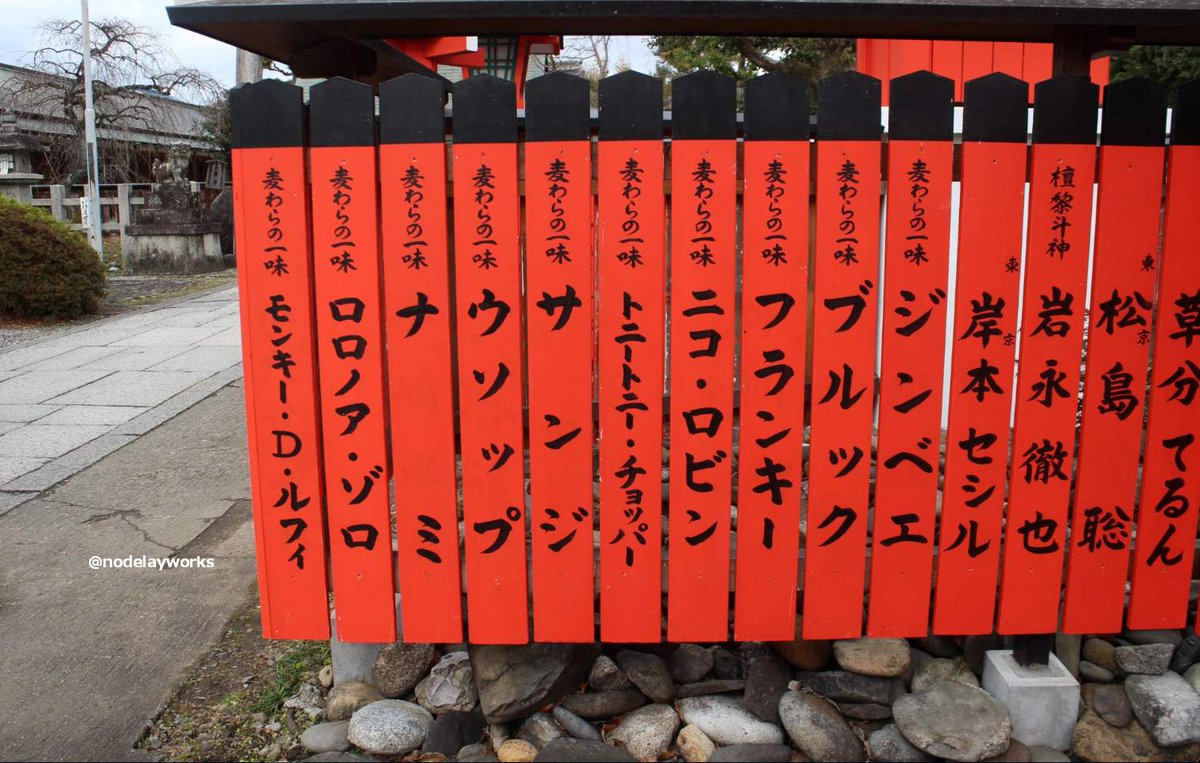 麦わらの一味 モンキー・D・ルフィ
麦わらの一味 ロロノア・ゾロ
麦わらの一味 ナミ
麦わらの一味 ウソップ
麦わらの一味 サンジ
麦わらの一味 トニートニー・チョッパー
麦わらの一味 ニコ・ロビン
麦わらの一味 フランキー
麦わらの一味 ブルック
麦わらの一味 ジンベエ
東京 岸本セシル
檀黎斗神 岩永徹也
東京 松島聡
草分てるん
@nodelayworks